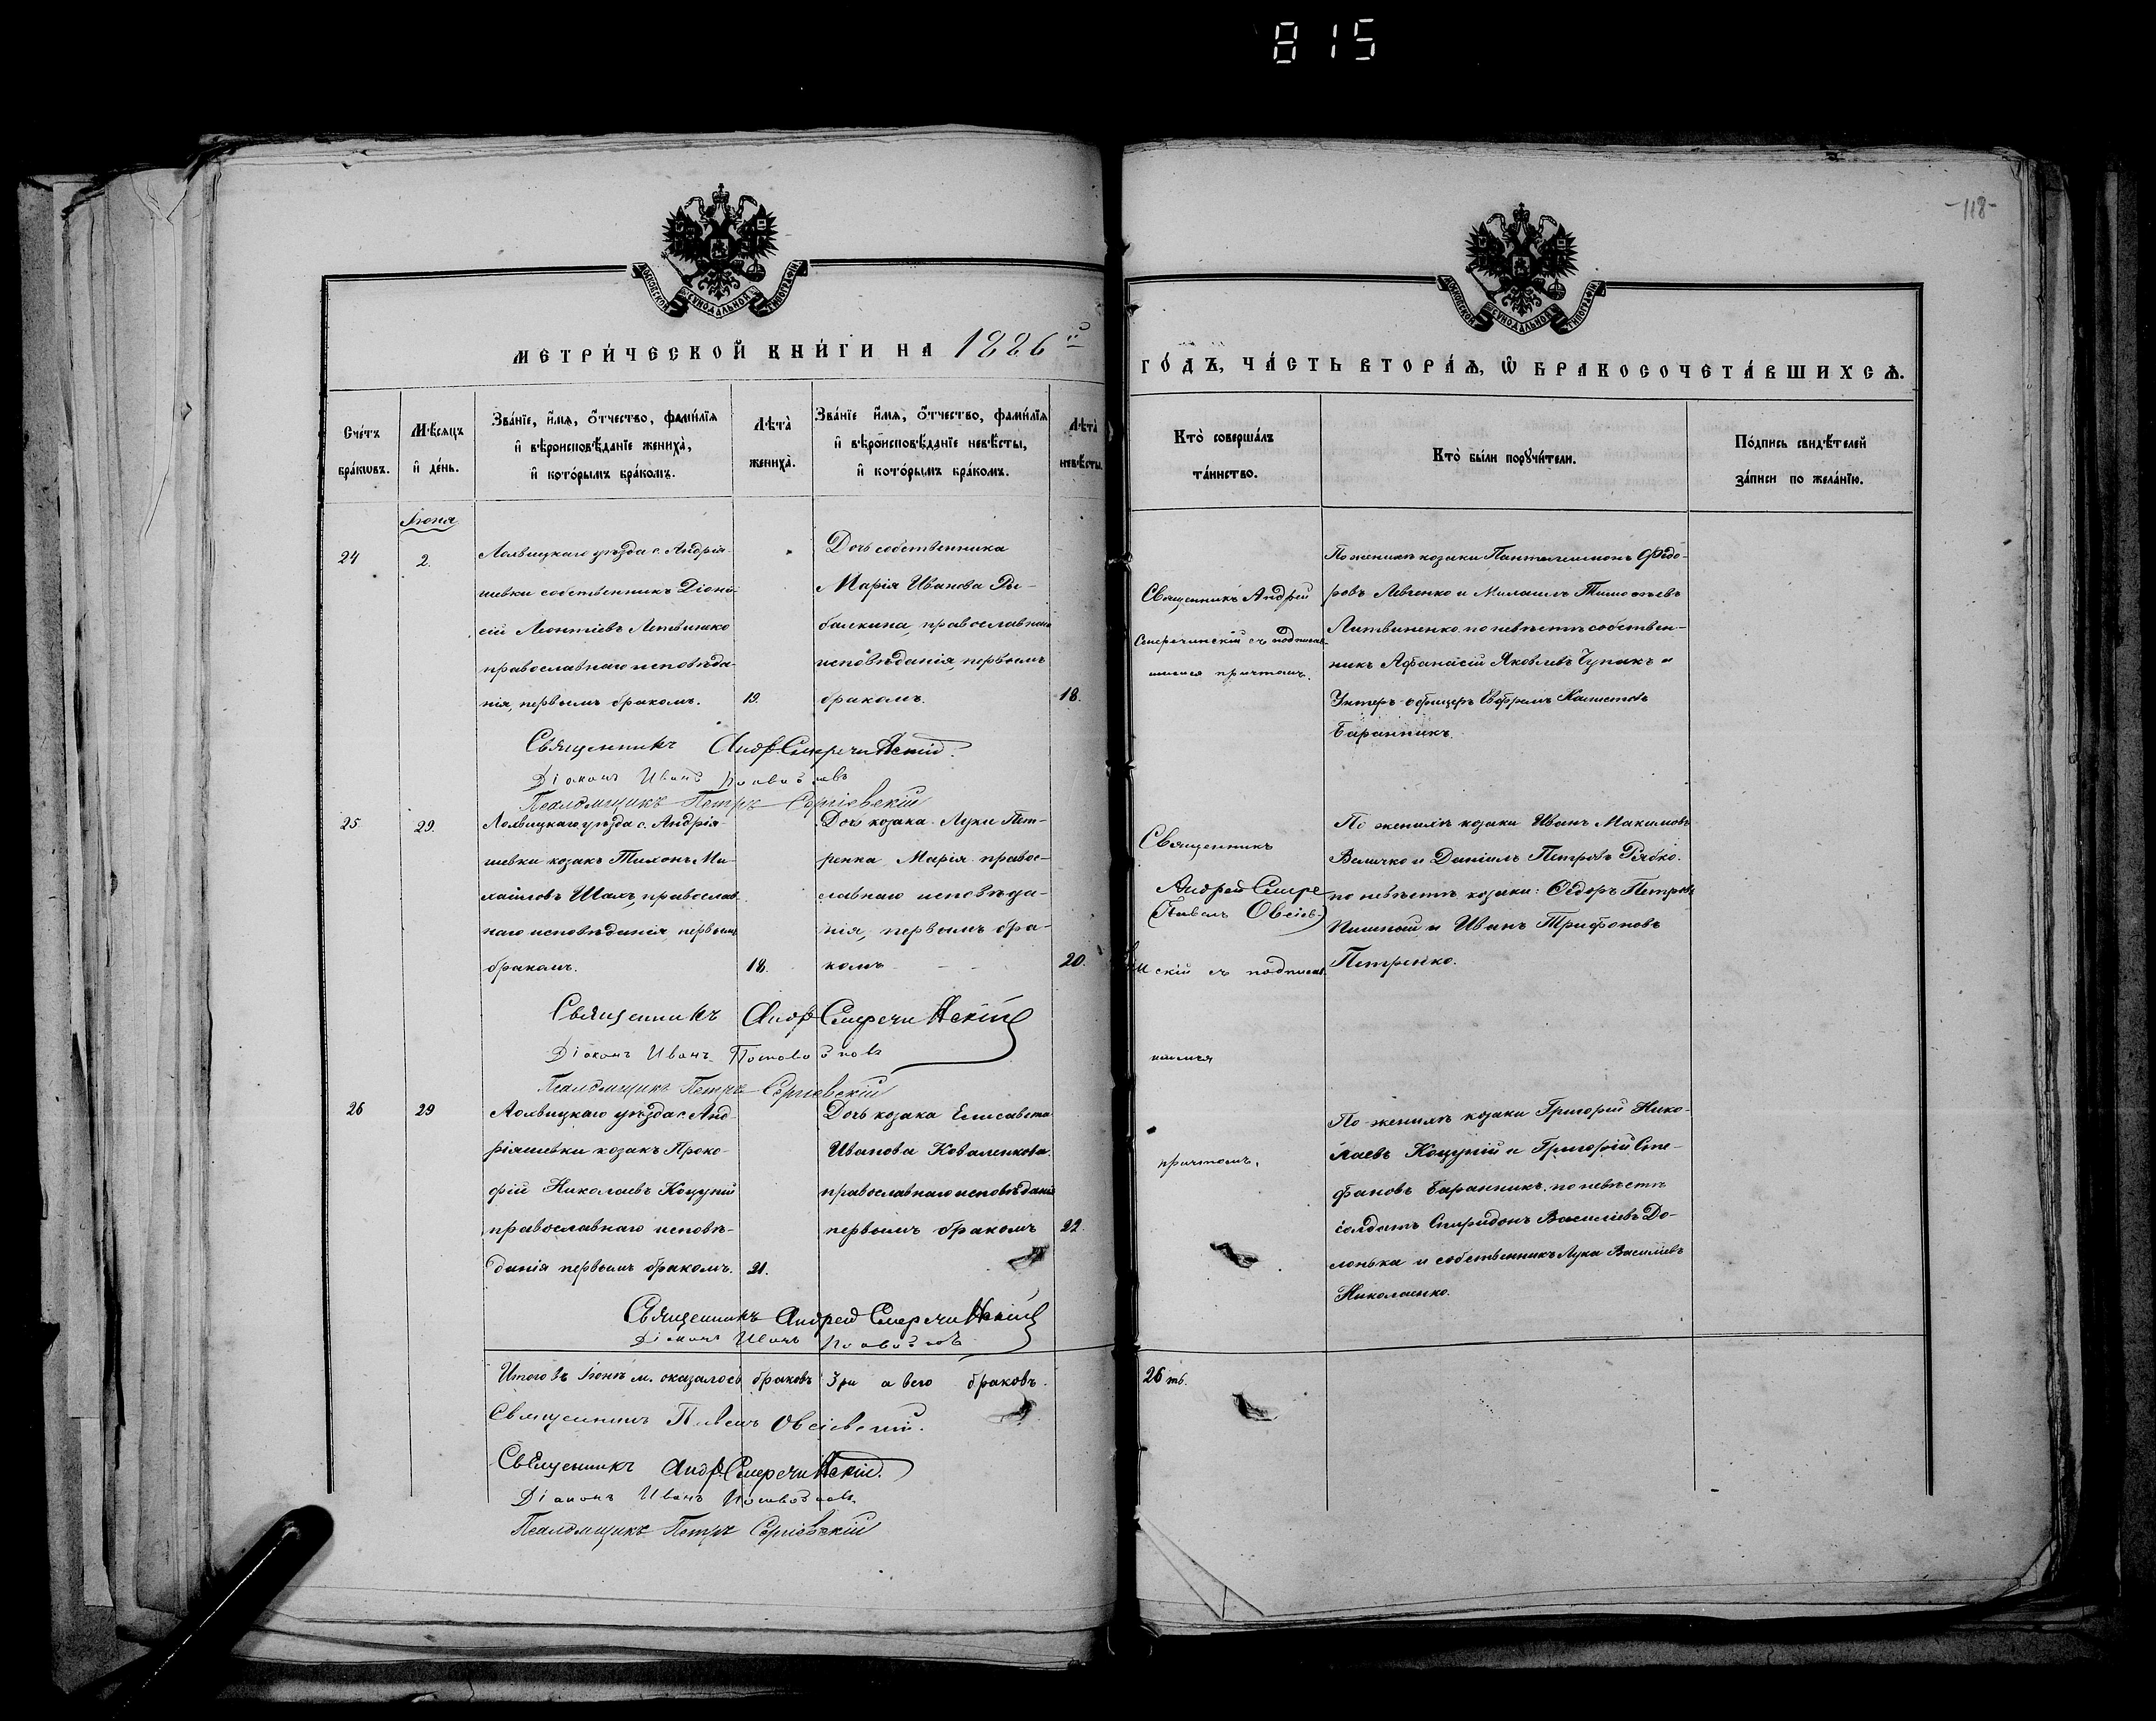 815
-118-
МОСКОВСКОЙ СѴНОДАЛЬНОЙ ТИПОГРАФІИ
МОСКОВСКОЙ СѴНОДАЛЬНОЙ ТИПОГРАФІИ
МЕТРИ́ЧЕСКОЙ КНИ́ГИ НА 1886 й
ГО́ДЪ, ЧА́СТЬ ВТОРА́Ѧ, Ѽ БРАКОСОЧЕТА́ВШИХСѦ.
Сче́тъ бра́кѡвъ.
Мѣ́сѧцъ и҆ де́нь.
Зва́нїе, и҆́мѧ, о҆́тчество, фами́лїѧ
и҆ вѣроисповѣ́данїе жениха̀,
и҆ кото́рымъ бра́комъ.
Лѣта̀ жениха̀.
Зва́нїе и҆́мѧ, о҆́тчество, фами́лїѧ
и҆ вѣроисповѣ́данїе невѣ́сты,
и҆ кото́рымъ бра́комъ.
Лѣта̀ невѣ́сты.
Кто̀ соверша́лъ
та́инство.
Кто̀ бы́ли порꙋчи́тели.
По́дпись свидѣ́телей
за́писи по жела́нїю.
Іюня
24
2.
Лохвицкаго уѣзда с. Андрія-
шевки собственникъ Діони-
сій Леонтіевъ Литвиненко
православнаго исповѣда-
нія, первымъ бракомъ.
19.
Дочь собственника
Марія Иванова Ры-
балкина, православнаго
исповѣданія, первымъ
бракомъ.
18.
Священникъ Андрей
Смеречинскій съ подписав-
шимся причтомъ.
По женихѣ козаки Пантелеимонъ Ѳедо-
ровъ Левченко и Михаилъ Тимоѳеевъ
Литвиненко, по невѣстѣ собствен-
никъ Афанасій Яковлевъ Чупикъ и
Унтеръ-офицеръ Евфремъ
Баранникъ.
Священникъ Андр Смеречинскій.
Діаконъ Иванъ
Псаломщикъ Петръ Сергіевскій
25
29.
Лохвицкаго уѣзда с. Андрія-
шевки козакъ Тихонъ Ми-
хаиловъ Шахъ, православ-
наго исповѣданія, первымъ
бракомъ.
18.
Дочь козака Луки Пет-
ренка, Марія, правос-
лавнаго исповѣда-
нія, первымъ бра-
комъ
20.
Священникъ
Андрей Смере
(Павелъ Овсіев)
скій съ подписав
шимся
причтомъ.
По женихѣ козаки Иванъ Максимовъ
Величко и Даніилъ Петровъ Рябко.
по невѣстѣ козаки: Ѳедоръ Петровъ
и Иванъ Трифоновъ
Петренко.
Священникъ Андр Смеречинскій
Діаконъ Иванъ
Псаломщикъ Петръ Сергіевскій
26
29
Лохвицкаго уѣзда с. Анд-
ріяшевки козакъ Проко-
фій Николаевъ Коцупій
православнаго исповѣ-
данія первымъ бракомъ.
21.
Дочь козака Елисавета
Иванова Коваленкова
православнаго исповѣданія
первымъ бракомъ
22.
По женихѣ козаки Григорій Нико-
лаевъ Коцупій и Григорій Сте-
фановъ Баранникъ, по невѣстѣ
солдатъ Спиридонъ Василіевъ До-
лонька и собственникъ Лука Василіевъ
Николаенко.
Священникъ Андрей Смеречинскій
Діаконъ Иванъ
Итого въ Іюнѣ м. оказалось браковъ три а всего браковъ.
26 ть.
Священникъ Павелъ Овсіевскій.
Священникъ Андр Смеречинскій.
Діаконъ Иванъ
Псаломщикъ Петръ Сергіевскій